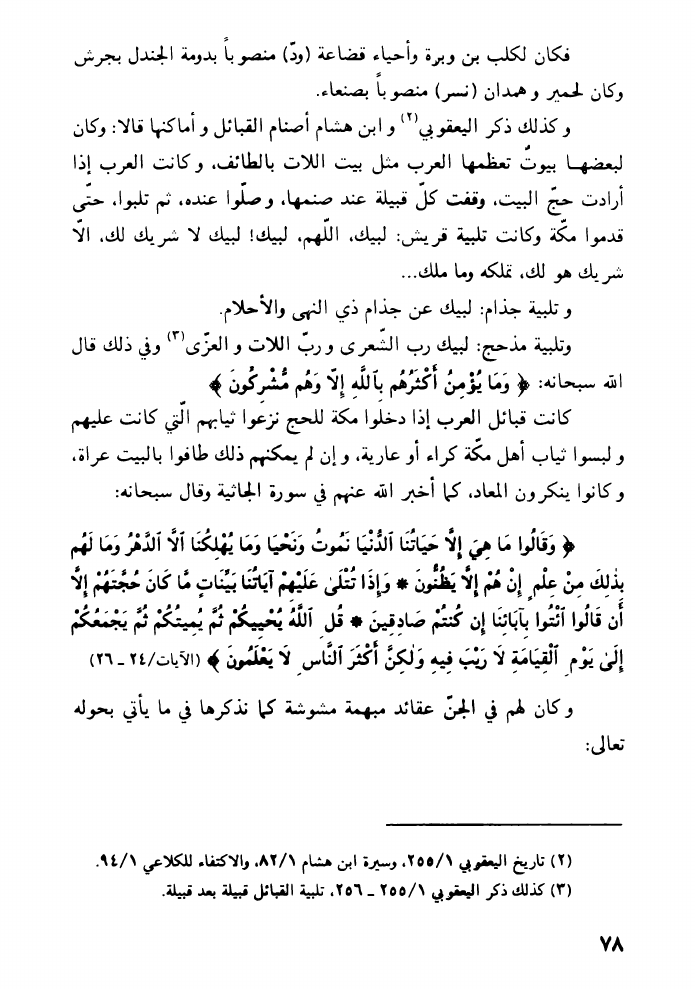 فكان لكلب بن وبرة وأحياء قضاعة (ودّ) منصوباً بدومة الجندل بجرش
وكان لحمير وهمدان (نسر) منصوباً بصنعاء.
وكذلك ذكر اليعقوبي(٢) وابن هشام أصنام القبائل وأماكنها قالا: وكان
لبعضها بيوتٌ تعظمها العرب مثل بيت اللات بالطائف، وكانت العرب إذا
أرادت حجّ البيت، وقفت كلّ قبيلة عند صنمها، وصلّوا عنده، ثم تلبوا، حتّى
قدموا مكّة وكانت تلبية قريش: لبيك، اللّهم، لبيك! لبيك لا شريك لك، الّا
شريك هو لك، تملكه وما ملك...
وتلبية جذام: لبيك عن جذام ذي النهى والأحلام.
وتلبية مذحج: لبيك رب الشّعرى وربّ اللات والعزّى(٣) وفي ذلك قال
الله سبحانه: ﴿ وَمَا يُؤْمِنُ أَكْثَرُهُم بِٱللَّهِ إِلّا وَهُم مُّشْرِكُونَ ﴾
كانت قبائل العرب إذا دخلوا مكة للحج نزعوا ثيابهم الّتي كانت عليهم
ولبسوا ثياب أهل مكّة كراء أو عارية، وإن لم يمكنهم ذلك طافوا بالبيت عراة،
وكانوا ينكرون المعاد، كما أخبر الله عنهم في سورة الجاثية وقال سبحانه:
﴿ وَقَالُوا مَا هِيَ إِلَّا حَيَاتُنَا ٱلدُّنْيَا نَمُوتُ وَنَحْيَا وَمَا يُهْلِكُنَا ٱلَّا ٱلدَّهْرُ وَمَا لَهُم
بِذٰلِكَ مِنْ عِلْمٍ إِنْ هُمْ إِلَّا يَظُنُّونَ * وَإِذَا تُتْلَىٰ عَلَيْهِمْ آيَاتُنَا بَيِّنَاتٍ مَّا كَانَ حُجَّتَهُمْ إِلَّا
أَن قَالُوا ٱئْتُوا بِآبَائِنَا إِن كُنتُمْ صَادِقِينَ * قُلِ ٱللَّهُ يُحْيِيكُمْ ثُمَّ يُمِيتُكُمْ ثُمَّ يَجْمَعُكُمْ
إِلَىٰ يَوْمِ ٱلْقِيَامَةِ لَا رَيْبَ فِيهِ وَلٰكِنَّ أَكْثَرَ ٱلنَّاسِ لَا يَعْلَمُونَ ﴾ (الآيات/٢٤ ـ ٢٦)
وكان لهم في الجنّ عقائد مبهمة مشوشة كما نذكرها في ما يأتي بحوله
تعالى:
(٢) تاريخ اليعقوبي ٢٥٥/١، وسيرة ابن هشام ٨٢/١، والاكتفاء للكلاعي ٩٤/١.
(٣) كذلك ذكر اليعقوبي ٢٥٥/١ ـ ٢٥٦، تلبية القبائل قبيلة بعد قبيلة.
٧٨